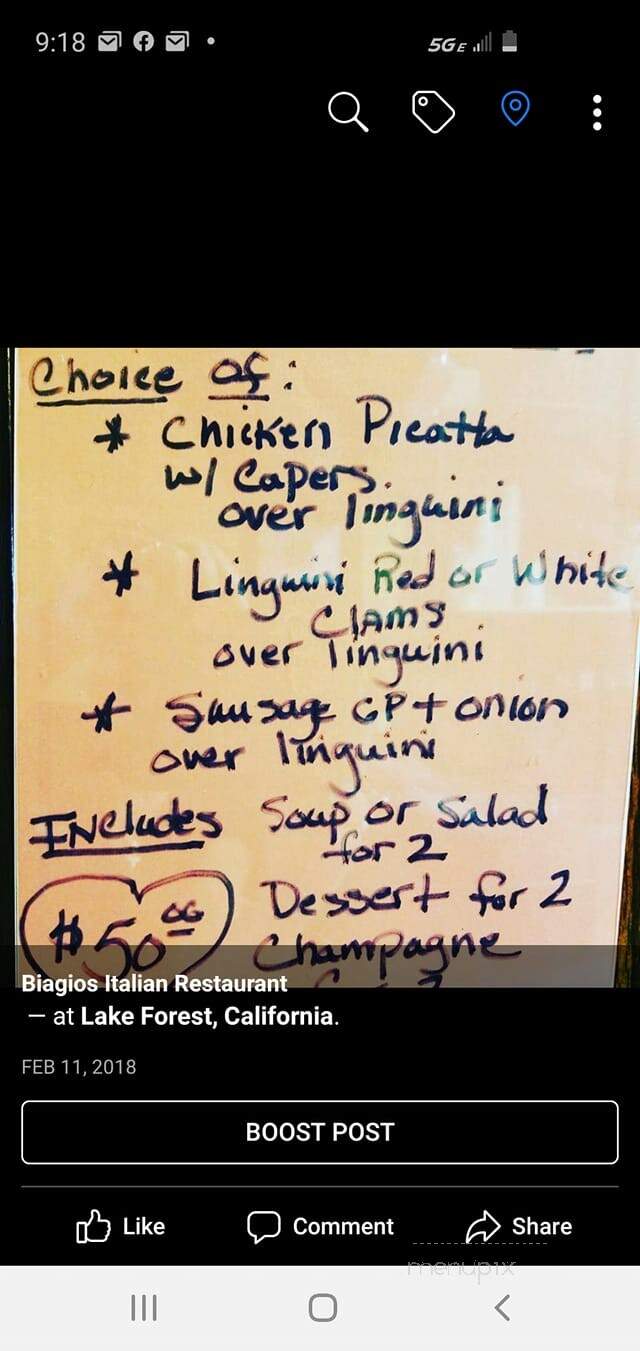 9:18
5GE
Choice of:
* Chicken Picatta
w/ Capers
over linguini
* Linguini Red or White
Clams
over linguini
* Sausage GP + onion
over linguini
Includes Soup or Salad
for 2
$50.00 Dessert for 2
Champagne
for 2
Biagios Italian Restaurant
— at Lake Forest, California.
FEB 11, 2018
BOOST POST
Like Comment Share
menupix